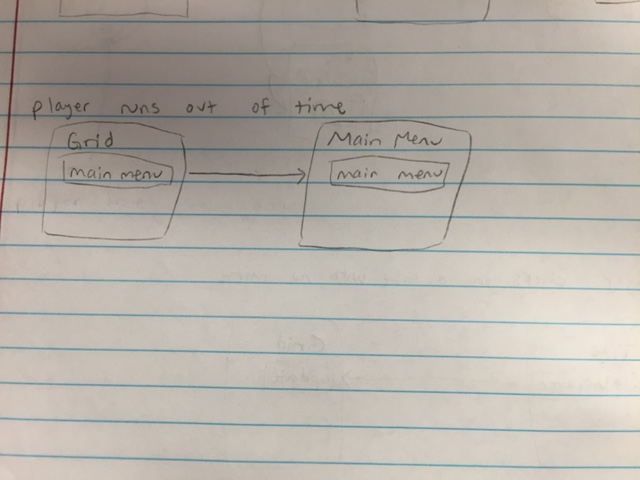 player runs out of time
Grid
main menu
Main Menu
main menu